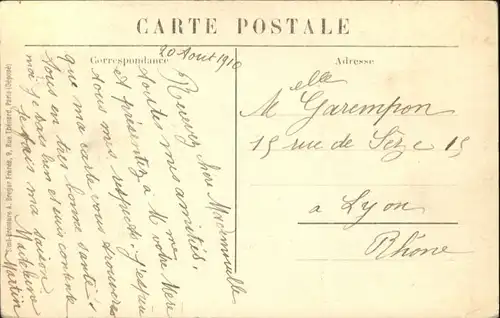 CARTE POSTALE
Correspondance
Adresse
20 Aout 1910
Recevez chère Mademoiselle
toutes mes amitiés,
et présentez à
votre Mère
tous mes respects. J'espère
que ma carte vous trouvera
tous en très bonne santé
moi je vais bien et suis contente
je fais ma saison
Martin
Melle Garempon
15 rue de Sèze 15
a Lyon
Rhône